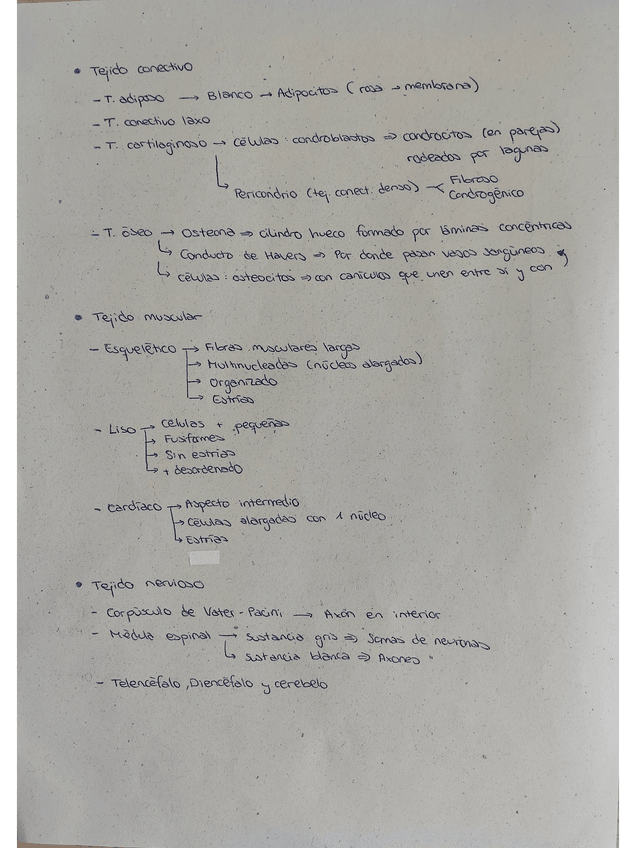 • Tejido conectivo
- T. adiposo → Blanco → Adipocitos (rosa → membrana)
- T. conectivo laxo
- T. cartilaginoso → células: condroblastos ⇒ condrocitos (en parejas)
rodeados por lagunas
Pericondrio (tej. conect. denso) < Fibroso
Condrogénico
- T. óseo → Osteona ⇒ cilindro hueco formado por láminas concéntricas
↳ Conducto de Havers ⇒ Por donde pasan vasos sangüneos
↳ células: osteocitos ⇒ con canículos que unen entre sí y con
• Tejido muscular
- Esquelético → Fibras musculares largas
→ Multinucleadas (núcleos alargados)
→ Organizado
→ Estrías
- Liso → Células + pequeñas
→ Fusiformes
→ Sin estrías
→ + desordenado
- Cardíaco → Aspecto intermedio
→ Células alargadas con 1 núcleo
→ Estrías
• Tejido nervioso
- Corpúsculo de Vater-Pacini → Axón en interior
- Médula espinal → sustancia gris ⇒ Somas de neuronas
↳ sustancia blanca ⇒ Axones "
- Telencéfalo, Diencéfalo y cerebelo